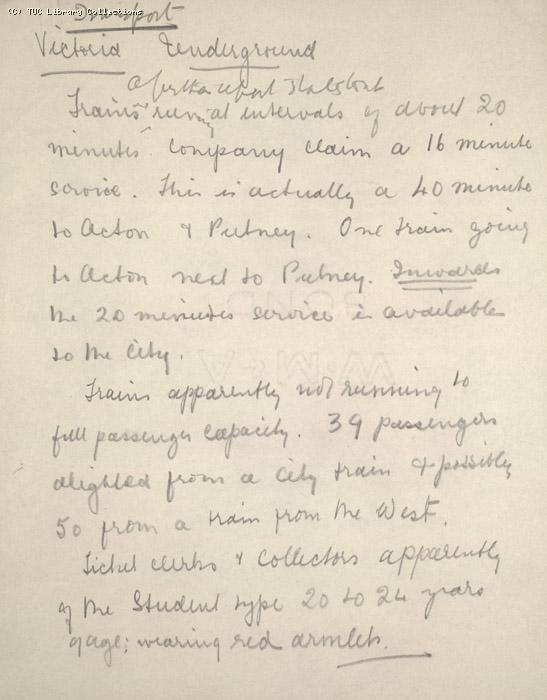 (C) TUC Library Collections
Transport
Victoria Underground
Trains run at intervals of about 20
minutes. Company claim a 16 minute
service. This is actually a 40 minute
to Acton & Putney. One train going
to Acton next to Putney. Inwards
the 20 minutes service is available
to the City.
Trains apparently not running to
full passenger capacity. 39 passengers
alighted from a City train & possibly
50 from a train from the West.
Ticket clerks & Collectors apparently
of the Student type 20 to 24 years
of age; wearing red armlets.